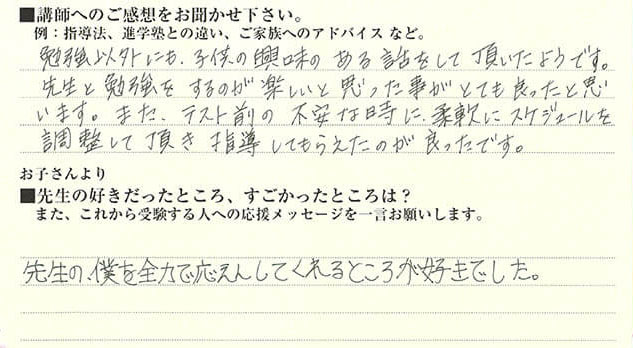 ■講師へのご感想をお聞かせ下さい。
例：指導法、進学塾との違い、ご家族へのアドバイス など。
勉強以外にも、子供の興味のある話をして頂いたようです。
先生と勉強をするのが楽しいと思った事がとても良ったと思
います。また、テスト前の不安な時に、柔軟にスケジュールを
調整して頂き指導してもらえたのが良ったです。
お子さんより
■先生の好きだったところ、すごかったところは？
また、これから受験する人への応援メッセージを一言お願いします。
先生の、僕を全力で応えんしてくれるところが好きでした。